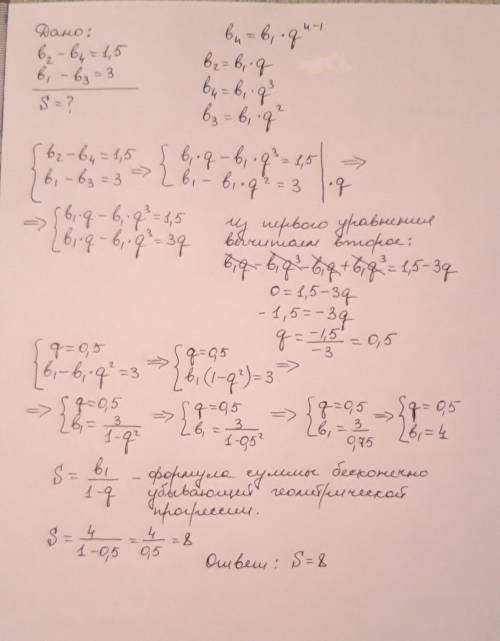 Дано:
b₂ − b₄ = 1,5
b₁ − b₃ = 3
S = ?
b₄ = b₁ · q⁴⁻¹
b₂ = b₁ · q
b₄ = b₁ · q³
b₃ = b₁ · q²
{ b₂ − b₄ = 1,5 ⇒ { b₁ · q − b₁ · q³ = 1,5 ⇒
b₁ − b₃ = 3 b₁ − b₁ · q² = 3 | · q
⇒ { b₁ · q − b₁ · q³ = 1,5
b₁ · q − b₁ · q³ = 3q
из первого уравнения
вычитаем второе:
b₁q − b₁q³ − b₁q + b₁q³ = 1,5 − 3q
0 = 1,5 − 3q
−1,5 = −3q
q = −1,5/−3 = 0,5
{ q = 0,5 ⇒ { q = 0,5 ⇒
b₁ − b₁ · q² = 3 b₁(1 − q²) = 3
⇒ { q = 0,5 ⇒ { q = 0,5 ⇒ { q = 0,5 ⇒ { q = 0,5
b₁ = 3/1−q² b₁ = 3/1−0,5² b₁ = 3/0,75 b₁ = 4
S = b₁/1−q – формула суммы бесконечно
убывающий геометрической
прогрессии.
S = 4/1−0,5 = 4/0,5 = 8
Ответ: S = 8